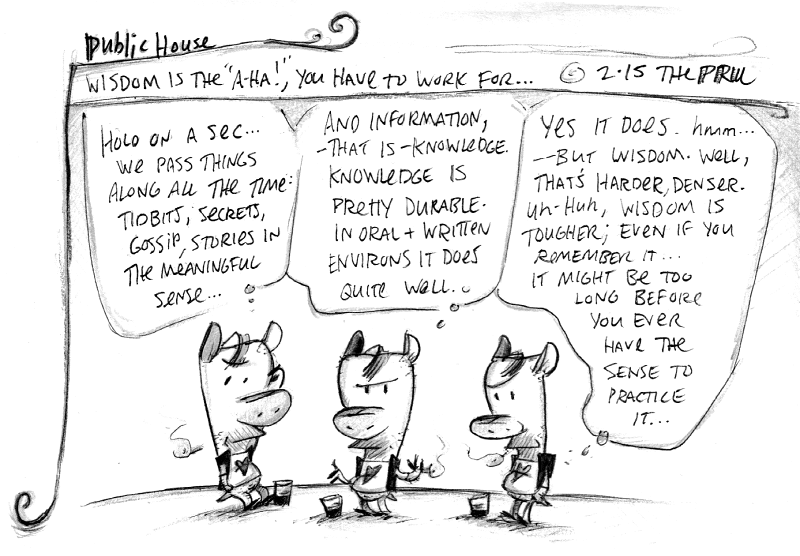 Public House
WISDOM IS THE "A-HA!", YOU HAVE TO WORK FOR... © 2.15 THE PRU
HOLD ON A SEC...
WE PASS THINGS
ALONG ALL THE TIME:
TIDBITS, SECRETS,
GOSSIP, STORIES IN
THE MEANINGFUL
SENSE...
AND INFORMATION,
-THAT IS-KNOWLEDGE.
KNOWLEDGE IS
PRETTY DURABLE.
IN ORAL + WRITTEN
ENVIRONS IT DOES
QUITE WELL...
YES IT DOES. hmm...
--BUT WISDOM. WELL,
THAT'S HARDER, DENSER.
Uh-Huh, WISDOM IS
TOUGHER; EVEN IF YOU
REMEMBER IT...
IT MIGHT BE TOO
LONG BEFORE
YOU EVER
HAVE THE
SENSE TO
PRACTICE
IT...